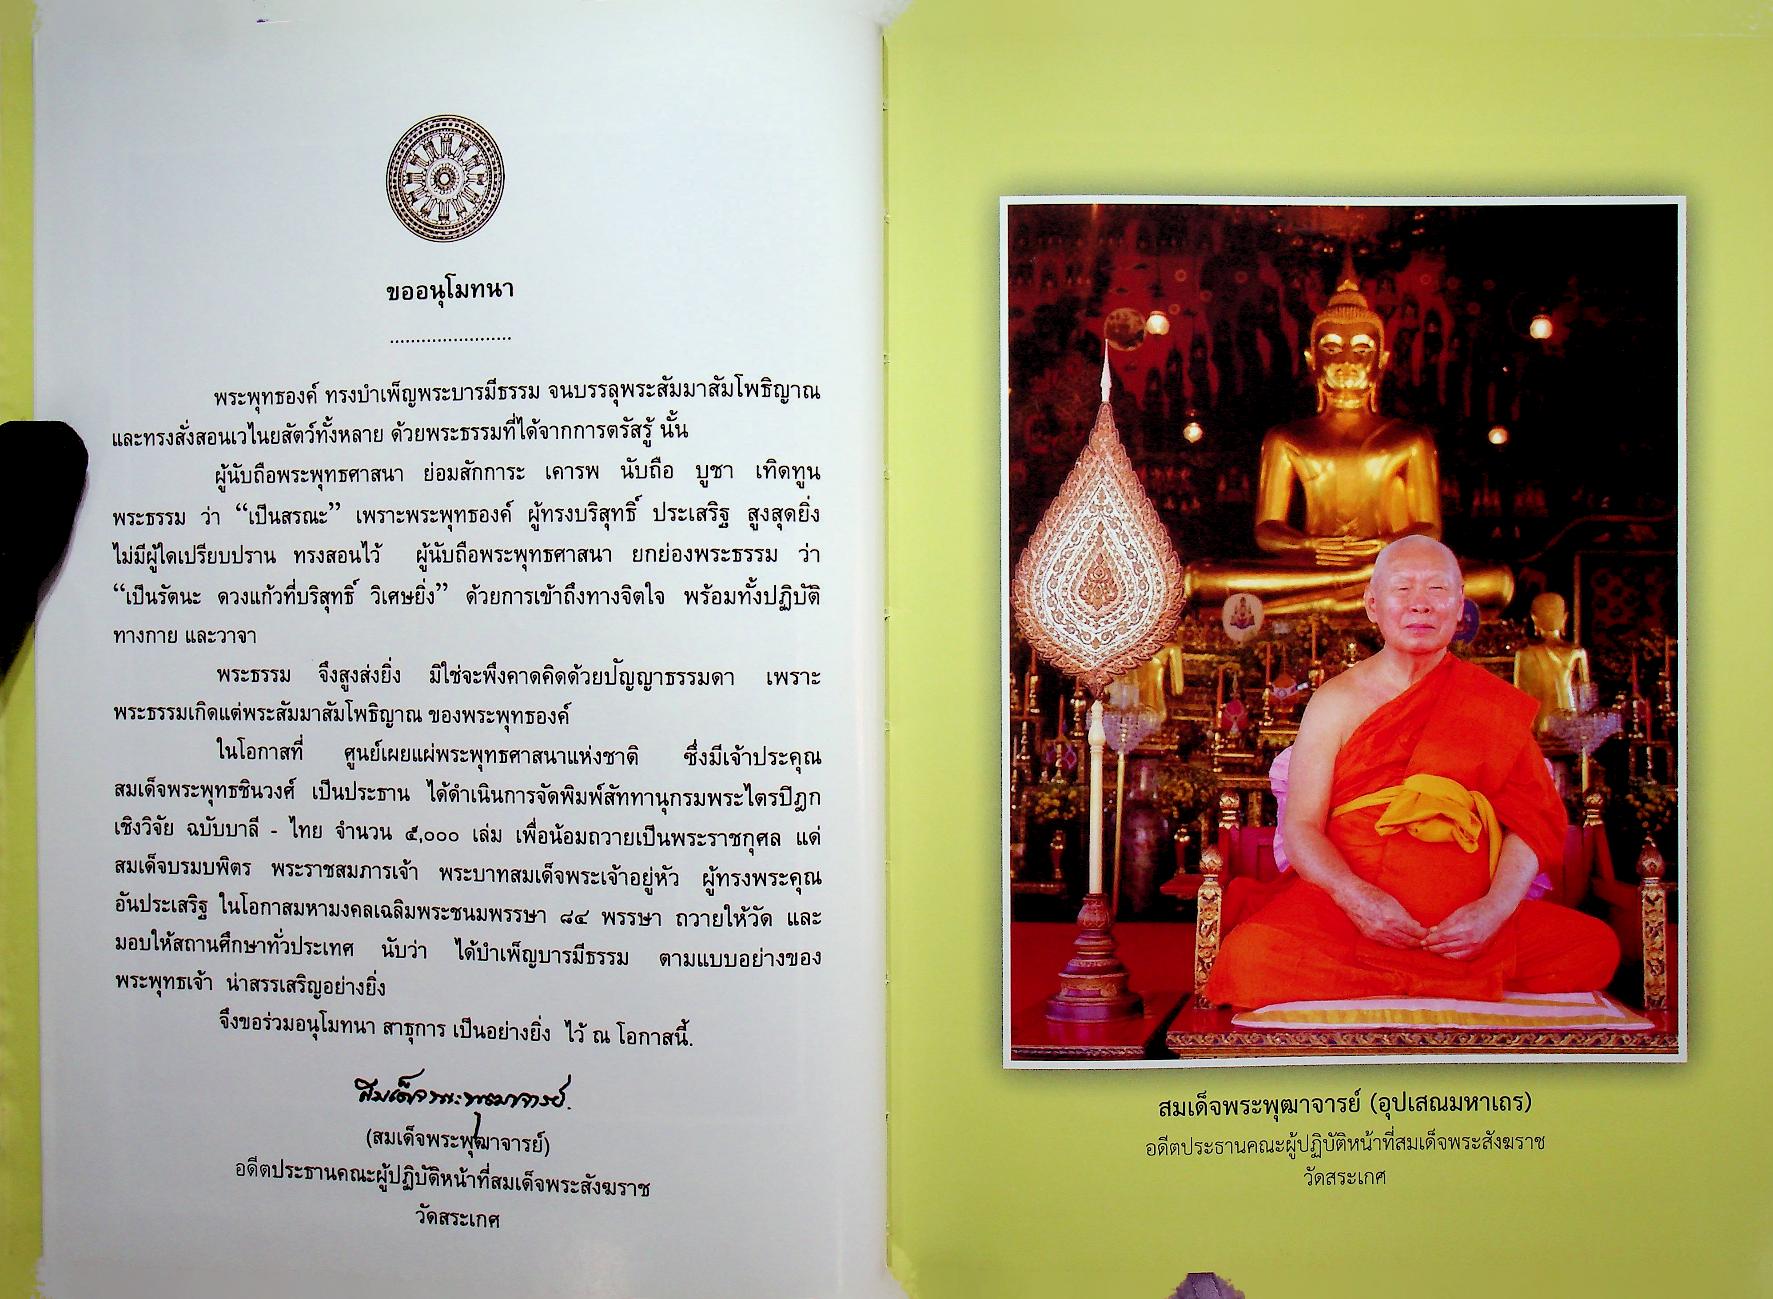 ขออนุโมทนา
........................
พระพุทธองค์ ทรงบำเพ็ญพระบารมีธรรม จนบรรลุพระสัมมาสัมโพธิญาณ
และทรงสั่งสอนเวไนยสัตว์ทั้งหลาย ด้วยพระธรรมที่ได้จากการตรัสรู้ นั้น
ผู้นับถือพระพุทธศาสนา ย่อมสักการะ เคารพ นับถือ บูชา เทิดทูน
พระธรรม ว่า “เป็นสรณะ” เพราะพระพุทธองค์ ผู้ทรงบริสุทธิ์ ประเสริฐ สูงสุดยิ่ง
ไม่มีผู้ใดเปรียบปราน ทรงสอนไว้ ผู้นับถือพระพุทธศาสนา ยกย่องพระธรรม ว่า
“เป็นรัตนะ ดวงแก้วที่บริสุทธิ์ วิเศษยิ่ง” ด้วยการเข้าถึงทางจิตใจ พร้อมทั้งปฏิบัติ
ทางกาย และวาจา
พระธรรม จึงสูงส่งยิ่ง มิใช่จะพึงคาดคิดด้วยปัญญาธรรมดา เพราะ
พระธรรมเกิดแต่พระสัมมาสัมโพธิญาณ ของพระพุทธองค์
ในโอกาสที่ ศูนย์เผยแผ่พระพุทธศาสนาแห่งชาติ ซึ่งมีเจ้าประคุณ
สมเด็จพระพุทธชินวงศ์ เป็นประธาน ได้ดำเนินการจัดพิมพ์สัททานุกรมพระไตรปิฎก
เชิงวิจัย ฉบับบาลี - ไทย จำนวน ๕,๐๐๐ เล่ม เพื่อน้อมถวายเป็นพระราชกุศล แด่
สมเด็จบรมบพิตร พระราชสมภารเจ้า พระบาทสมเด็จพระเจ้าอยู่หัว ผู้ทรงพระคุณ
อันประเสริฐ ในโอกาสมหามงคลเฉลิมพระชนมพรรษา ๘๔ พรรษา ถวายให้วัด และ
มอบให้สถานศึกษาทั่วประเทศ นับว่า ได้บำเพ็ญบารมีธรรม ตามแบบอย่างของ
พระพุทธเจ้า น่าสรรเสริญอย่างยิ่ง
จึงขอร่วมอนุโมทนา สาธุการ เป็นอย่างยิ่ง ไว้ ณ โอกาสนี้.
สมเด็จพระพุฒาจารย์.
(สมเด็จพระพุฒาจารย์)
อดีตประธานคณะผู้ปฏิบัติหน้าที่สมเด็จพระสังฆราช
วัดสระเกศ
สมเด็จพระพุฒาจารย์ (อุปเสณมหาเถร)
อดีตประธานคณะผู้ปฏิบัติหน้าที่สมเด็จพระสังฆราช
วัดสระเกศ